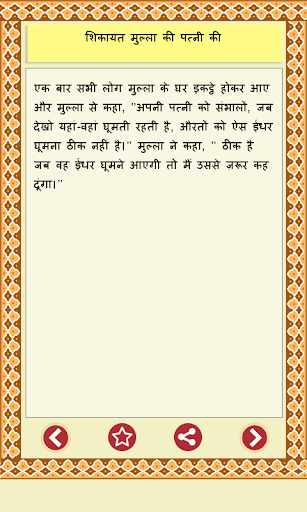 शिकायत मुल्ला की पत्नी की
एक बार सभी लोग मुल्ला के घर इकट्ठे होकर आए
और मुल्ला से कहा, ''अपनी पत्नी को संभालों, जब
देखो यहां-वहां घूमती रहती है, औरतो को ऐस ईधर
घूमना ठीक नही है।'' मुल्ला ने कहा, '' ठीक है
जब वह ईधर घूमने आएगी तो मैं उससे ज़रूर कह
दूंगा।''